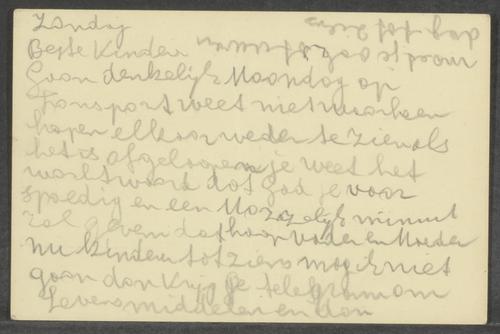 Zondag
Beste Kinderen
Gaan denkelijk Maandag op
Transport weet niet waarheen
hopen elkaar weder te zien als
het is afgeloopen je weet het
wacht woord dat God je voor
spoedig en een Mazzelijk minuut
zal geven dat hoop Vader en Moeder
nu kinderen tot ziens mog ik niet
gaan dan krijg je telegram om
Levensmiddelen en dan
dag tot ziens